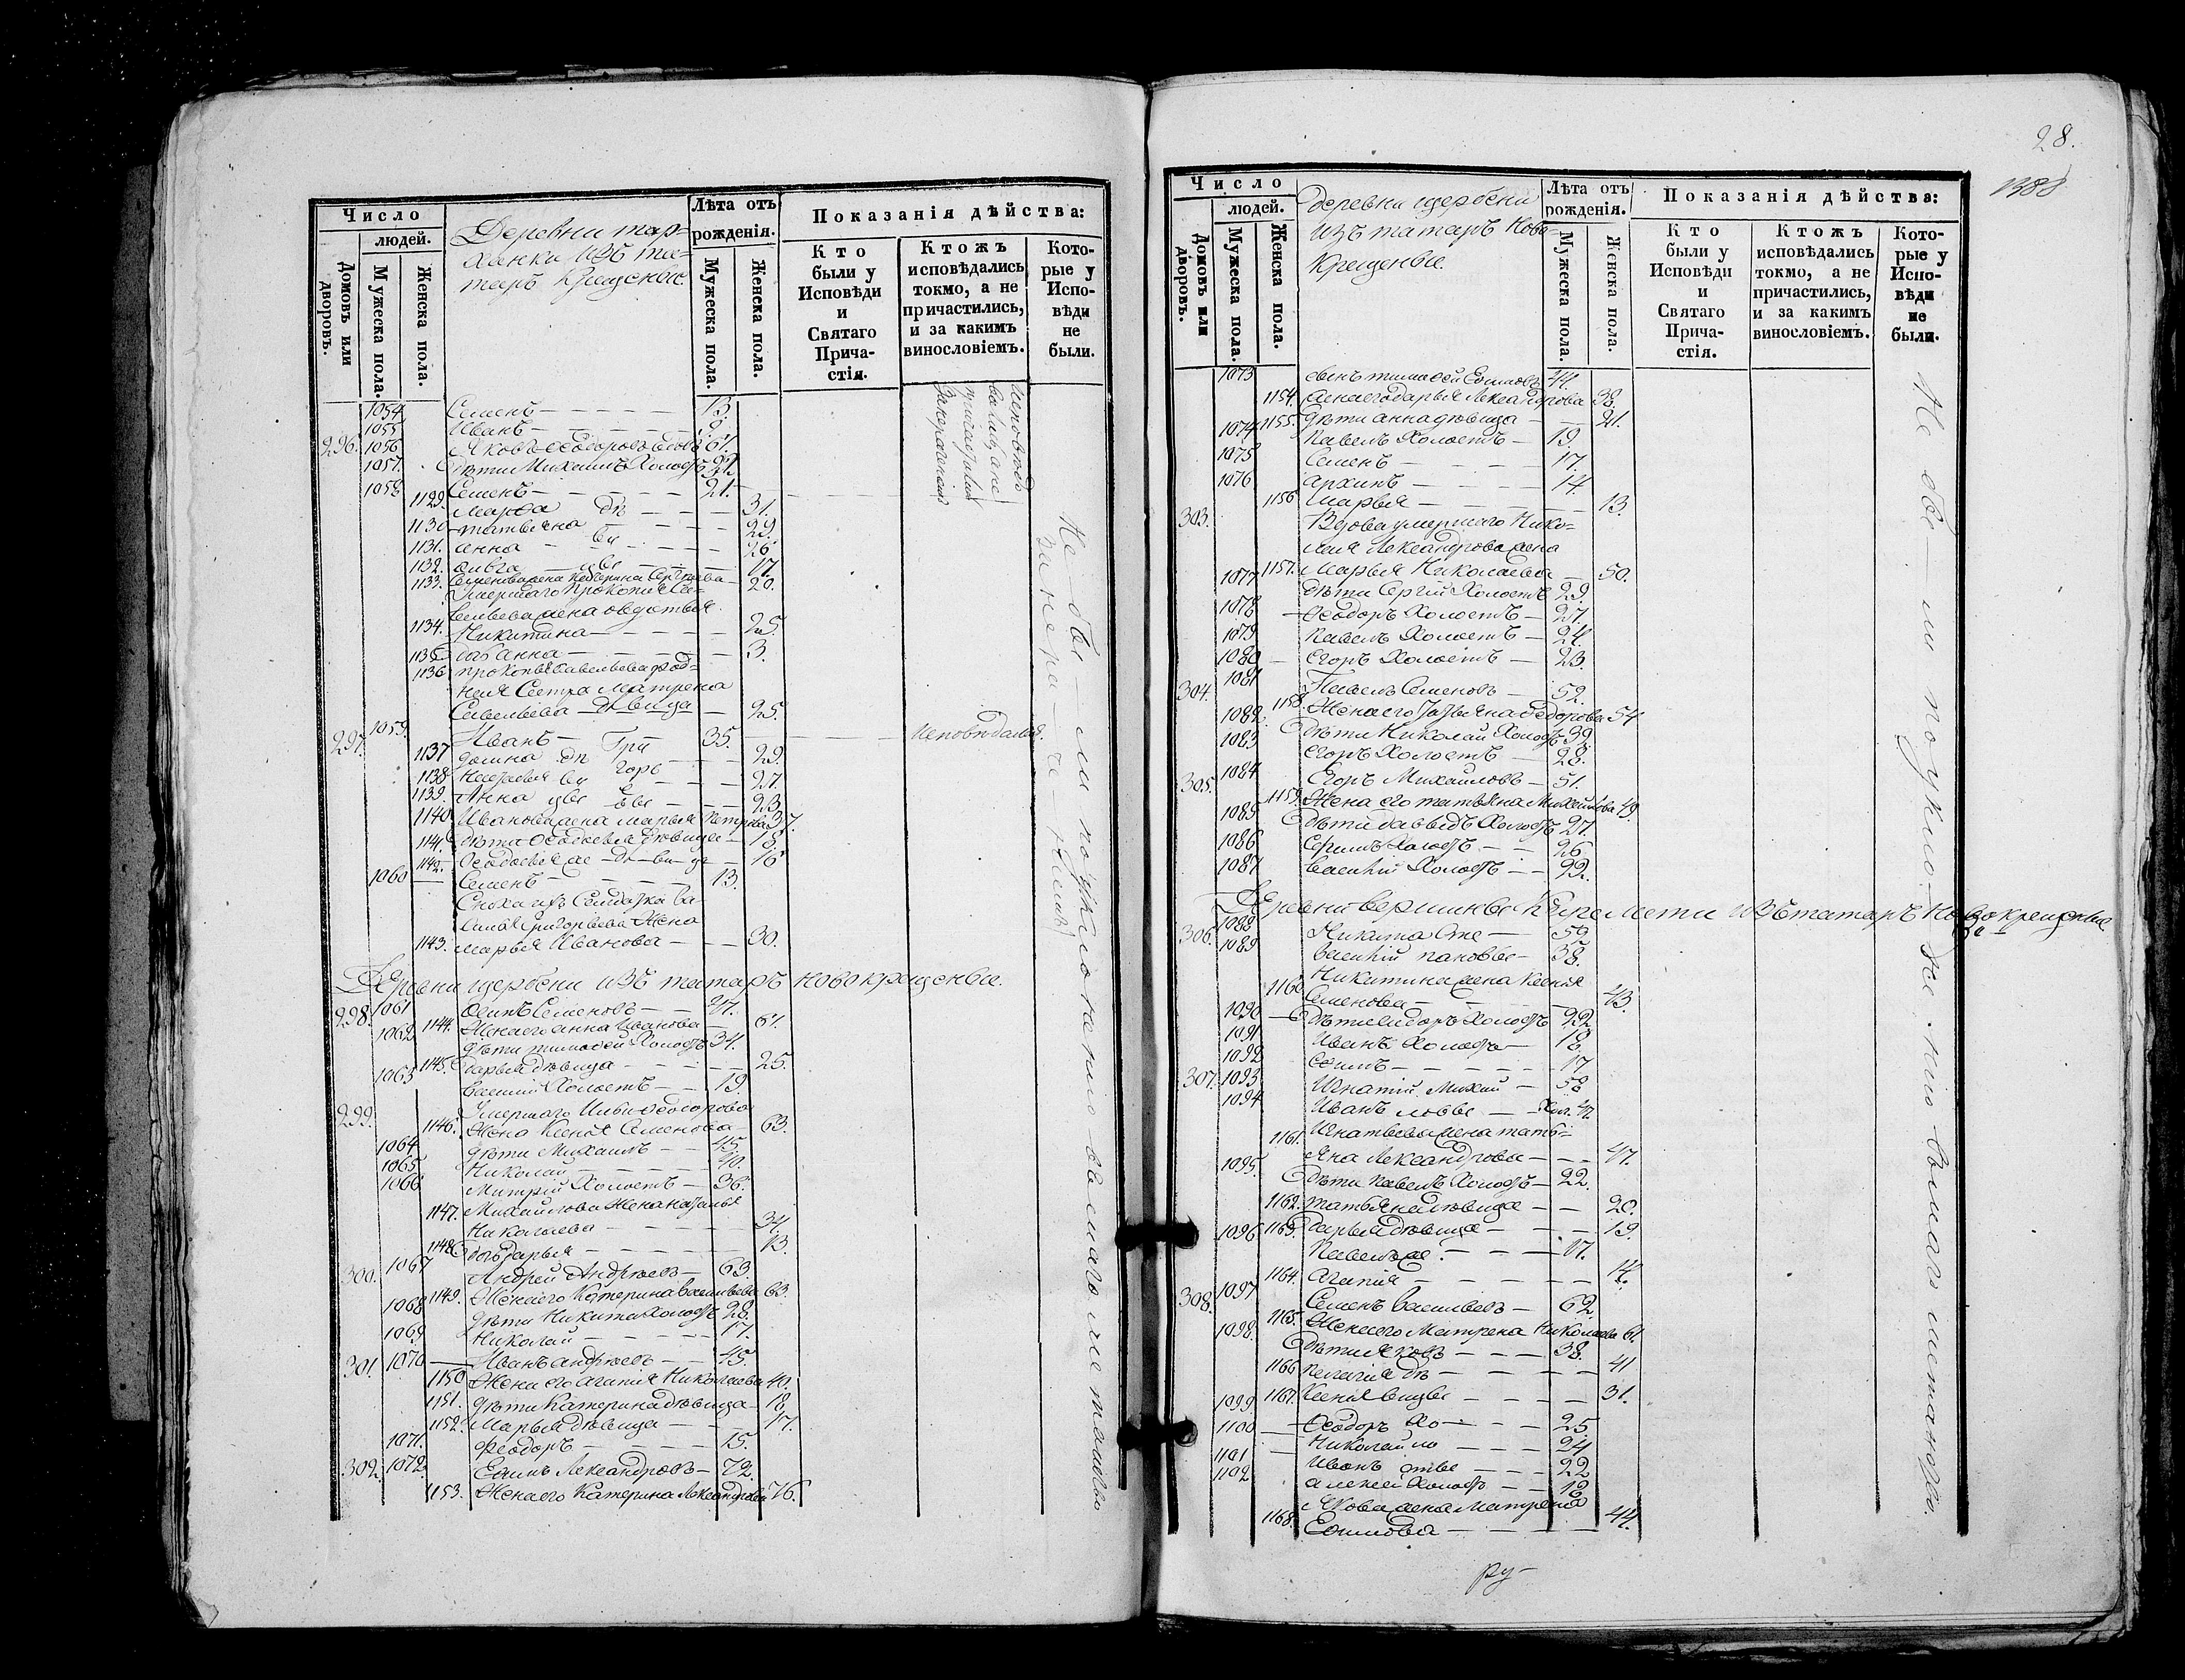 Число
людей.
Домовъ или дворовъ.
Мужеска пола.
Женска пола.
Деревни тар-
ханки изъ та-
таръ крещеные.
Лѣта отъ
рожденія.
Мужеска пола.
Женска пола.
Показанія дѣйства:
Кто
были у
Исповѣди
и
Святаго
Прича-
стія.
Ктожъ
исповѣдались
токмо, а не
причастились,
и за какимъ
винословіемъ.
Кото-
рые у
Испо-
вѣди
не
были.
1054 Семенъ — 13.
1055 Иванъ — 9.
296. 1056. Яковъ Ѳеодоровъ вдовъ 61.
1057. Дѣти Михаилъ Холостъ
1058 Семенъ — 21.
1129. Марѳа дѣ — 31.
1130 татьяна ви — 29.
1131. анна — 26
1132. ольга — цы — 17.
1133. Семенова жена Катерина Сергѣева — 20.
Умершаго Прокопія Са-
вельева жена овдотья
1134. Никитина — 25.
1135 анна — 3.
1136 прокопія савельева род-
ная Сестра Матрена
Савельева дѣвица — 25.
297. 1059. Иванъ — Гри 35. Исповѣдался.
1137 дѣ — 29.
1138 Наталья ви горь — 27.
1139. Анна цы евы — 23.
1140 Иванова жена марья Петрова 37.
1141. дѣти Ѳеодосья дѣвица — 18.
1142. Ѳеодосія же — дѣ — ви — ца — 16
1060 — Семенъ — 13.
Сноха ихъ Солдатка Ва-
силья Григорьева Жена
1143. марья Иванова — 30.
Деревни щербени изъ татаръ новокрещеные.
298. 1061 Осипъ Семеновъ — 47.
1144. Жена его анна Иванова — 61.
1062 дѣти тимоѳей Холостъ 34.
1145. дарья дѣвица — 25.
1063 василій Холостъ — 19.
299. Умершаго Ѳеодорова
1146. Жена Ксенья Семенова — 63.
1064 дѣти Михаилъ — 45.
1065 Николай — 40.
1066 Митрій Холостъ — 36.
1147. Михайлова Жена наталья
Николаева — 34.
1148 дочь дарья — 13.
300. 1067 Андрей Андрѣевъ — 63.
1149. Жена его Катерина васильева 63.
1068 дѣти Никита Холостъ 28.
1069 Николай — 17.
301. 1070 — Иванъ андрѣевъ — 45.
1150 Жена его агапія Николаева 40.
1151. дѣти Катерина дѣвица — 18
1152. Марья дѣвица — 17.
1071. Ѳеодоръ — 15.
302. 1072. Ефимъ Александровъ — 72.
1153. Жена его Катерина Александрова 76.
28.
1388
Число
людей.
Домовъ или дворовъ.
Мужеска пола.
Женска пола.
деревни щербени
изъ татаръ Ново-
крещеные.
Лѣта отъ
рожденія.
Мужеска пола.
Женска пола.
Показанія дѣйства:
Кто
были у
Исповѣди
и
Святаго
Прича-
стія.
Ктожъ
исповѣдались
токмо, а не
причастились,
и за какимъ
винословіемъ.
Кото-
рые у
Испо-
вѣди
не
были.
1073 сынъ тимоѳей Ефимовъ 44.
1154. жена его дарья Александрова 38.
1155. дѣти анна дѣвица — 21.
1074 павелъ Холостъ — 19.
1075 Семенъ — 17.
1076 архипъ — 14.
1156 Марья — 13.
303. Вдова умершаго Нико-
лая Александрова жена
1157. Марья Николаева — 50.
1077 дѣти Сергій Холостъ 29
1078 — Ѳеодоръ Холостъ — 27.
1079 павелъ Холостъ — 24.
1080 — Егоръ Холостъ — 23.
304. 1081 Павелъ Семеновъ — 52.
1158. Жена его Татьяна Ѳедорова 54
1082 дѣти Николай Холостъ 39
1083 Егоръ Холостъ — 28.
305. 1084 Егоръ Михайловъ — 51.
1159. Жена его татьяна Михайлова 49.
1085 дѣти давыдъ Холостъ 27.
1086 Холостъ — 26
1087 василій Холостъ — 22.
Деревни вершины Киремети изъ татаръ новокрещеные
306. 1088 Никита Сте — 59
1089 василій пановы — 38.
Никитина жена Ксенья
1160 Семенова — 43.
1090 дѣти Ѳедоръ Холостъ 22
1091 Иванъ Холостъ — 18.
1092 Ефимъ — 17
307. 1093 Игнатій Михай — 58
1094 Иванъ ловы — Хол. 47.
1161. Игнатьева жена тать-
яна Александрова — 47.
1095. дѣти павелъ Холостъ — 22.
1162. татьяна дѣвица — 20.
1163. дарья дѣвица — 19.
1096 павелъ же — 17.
1164. агапія — 14.
308. 1097 Семенъ васильевъ — 62.
1165. Жена его Матрена Николаева 61.
1098. дѣти яковъ — 38.
1166 пелагія дѣ — 41
1167. Ксенія вицы — 31.
1099 — Ѳеодоръ Хо — 25.
1100 — Николай ло — 24
1101 Иванъ стые — 22
1102 алексѣй Холостъ — 18
Якова жена Матрена
1168. Ефимова — 44.
ру-